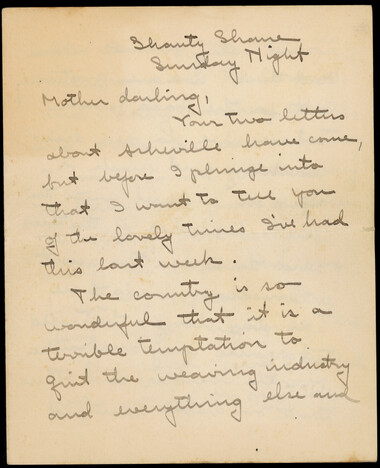 Shanty Shane
Sunday Night
Mother darling,
Your two letters
about Asheville have come,
but before I plunge into
that I want to tell you
of the lovely times I've had
this last week.
The country is so
wonderful that it is a
terrible temptation to
quit the weaving industry
and everything else and